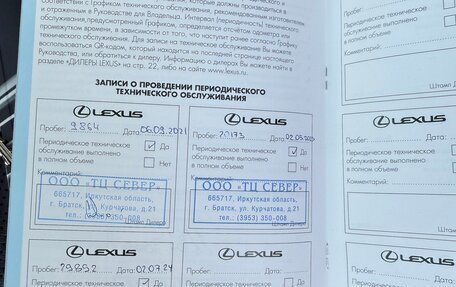 соответствии с Графиком технического обслуживания, который должны производиться в
и отраженным в Руководстве для Владельца. Интервал (периодичность) технического
обслуживания, предусмотренный Графиком, определяется отсчётом одометра или
промежутком времени, в зависимости от того, что наступит ранее согласно Графику
технического обслуживания. Для записи на техническое обслуживание Вы можете
воспользоваться QR-кодом, который находится на последней странице настоящего
Руководства, или обратиться к дилеру. Информацию о дилерах Вы можете найти в
разделе «ДИЛЕРЫ LEXUS» на стр. 22, либо на сайте www.lexus.ru.
ЗАПИСИ О ПРОВЕДЕНИИ ПЕРИОДИЧЕСКОГО
ТЕХНИЧЕСКОГО ОБСЛУЖИВАНИЯ
LEXUS
Пробег: 9864 Дата: 06.09.2021
Периодическое техническое
обслуживание выполнено
в полном объеме
Да
Нет
Комментарий:
ООО «ТЦ СЕВЕР»
665717, Иркутская область,
г. Братск, ул. Курчатова, д.21
тел.: (3953) 350-008
Штамп Дилера
LEXUS
Пробег: 20173 Дата:
Периодическое техническое
обслуживание выполнено
в полном объеме
Да
Нет
Комментарий:
ООО «ТЦ СЕВЕР»
665717, Иркутская область,
г. Братск, ул. Курчатова, д.21
тел.: (3953) 350-008
Штамп Дилера
LEXUS
Пробег: 29892 Дата: 02.07.24
Периодическое техническое
обслуживание выполнено
Да
LEXUS
Пробег: Дата:
Периодическое техническое
обслуживание выполнено
Да
Периодическое техническое
обслуживание выполнено
в полном объеме
Комментарий:
Штамп Д
LEXUS
Пробег: Дата:
Периодическое техническое
обслуживание выполнено
в полном объеме
Да
Нет
Комментарий:
Штамп Дил
LEXUS
Пробег: Дата:
Периодическое техническое